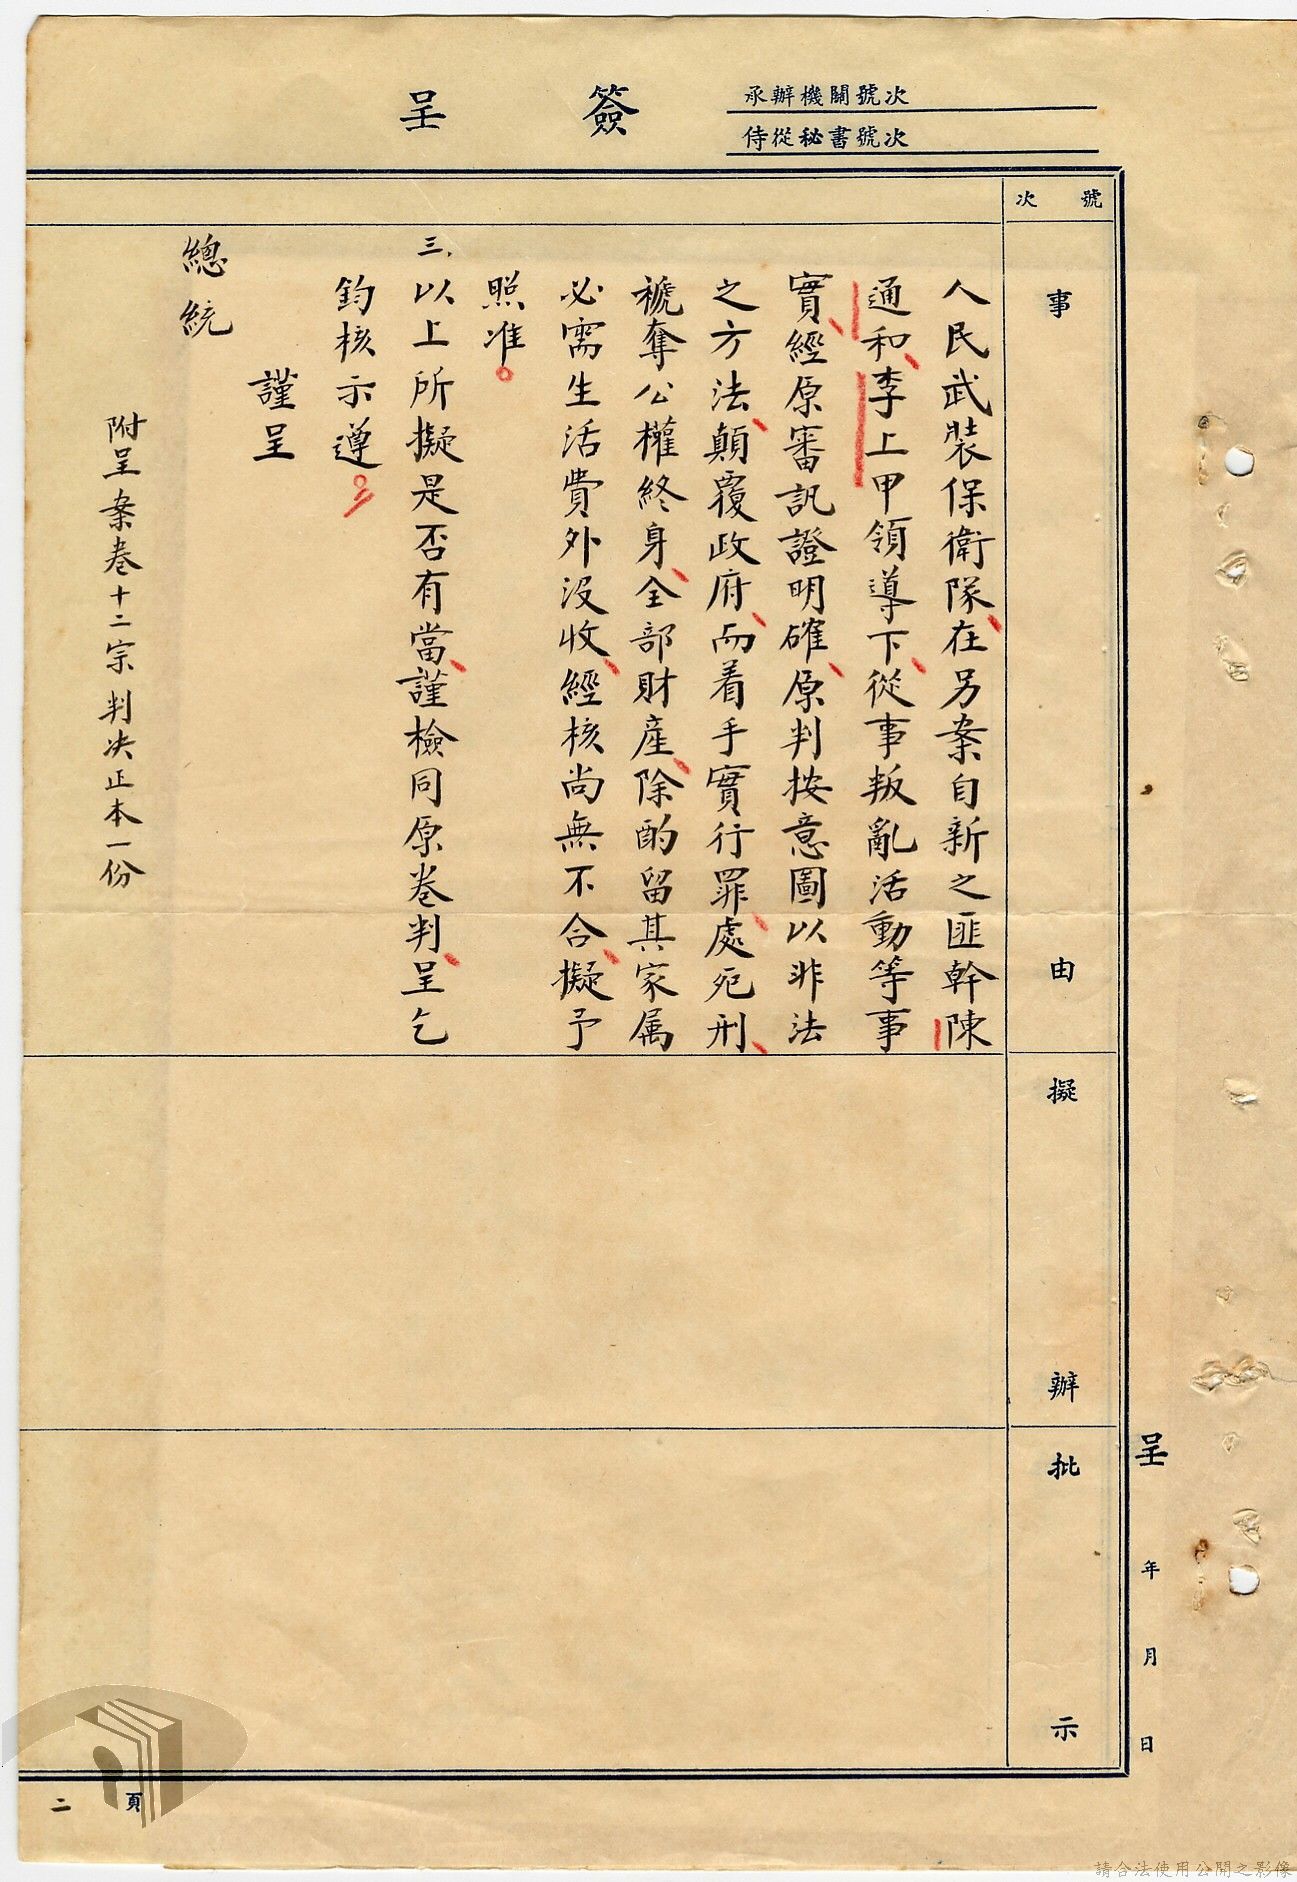 簽呈
承辦機關號次
侍從秘書號次
號次
事由
擬辦
批示
呈 年 月 日
人民武裝保衛隊、在另案自新之匪幹陳
通和、李上甲領導下、從事叛亂活動等事
實、經原審訊證明確、原判按意圖以非法
之方法、顛覆政府、而着手實行罪、處死刑、
褫奪公權終身、全部財產、除酌留其家属
必需生活費外沒收、經核尚無不合、擬予
照准。
三、以上所擬是否有當、謹檢同原卷判、呈乞
鈞核示遵。
謹呈
總統
附呈案卷十二宗判决正本一份
二頁
請合法使用公開之影像